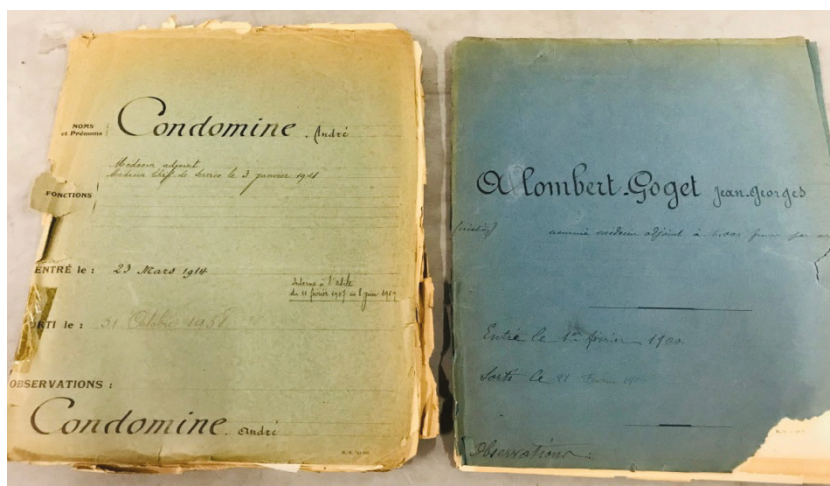 NOMS
et Prénoms
Condomine André
Médecin adjoint
Médecin Chef de Service le 3 janvier
FONCTIONS
ENTRÉ le : 23 Mars 1914
Interne à l'Asile
du 11 février
RTI le : 31 Octobre
OBSERVATIONS :
Condomine André
Allombert-Goget Jean-Georges
nommé médecin adjoint à
Entré le 1er février 1900
Sorti le
Observations :